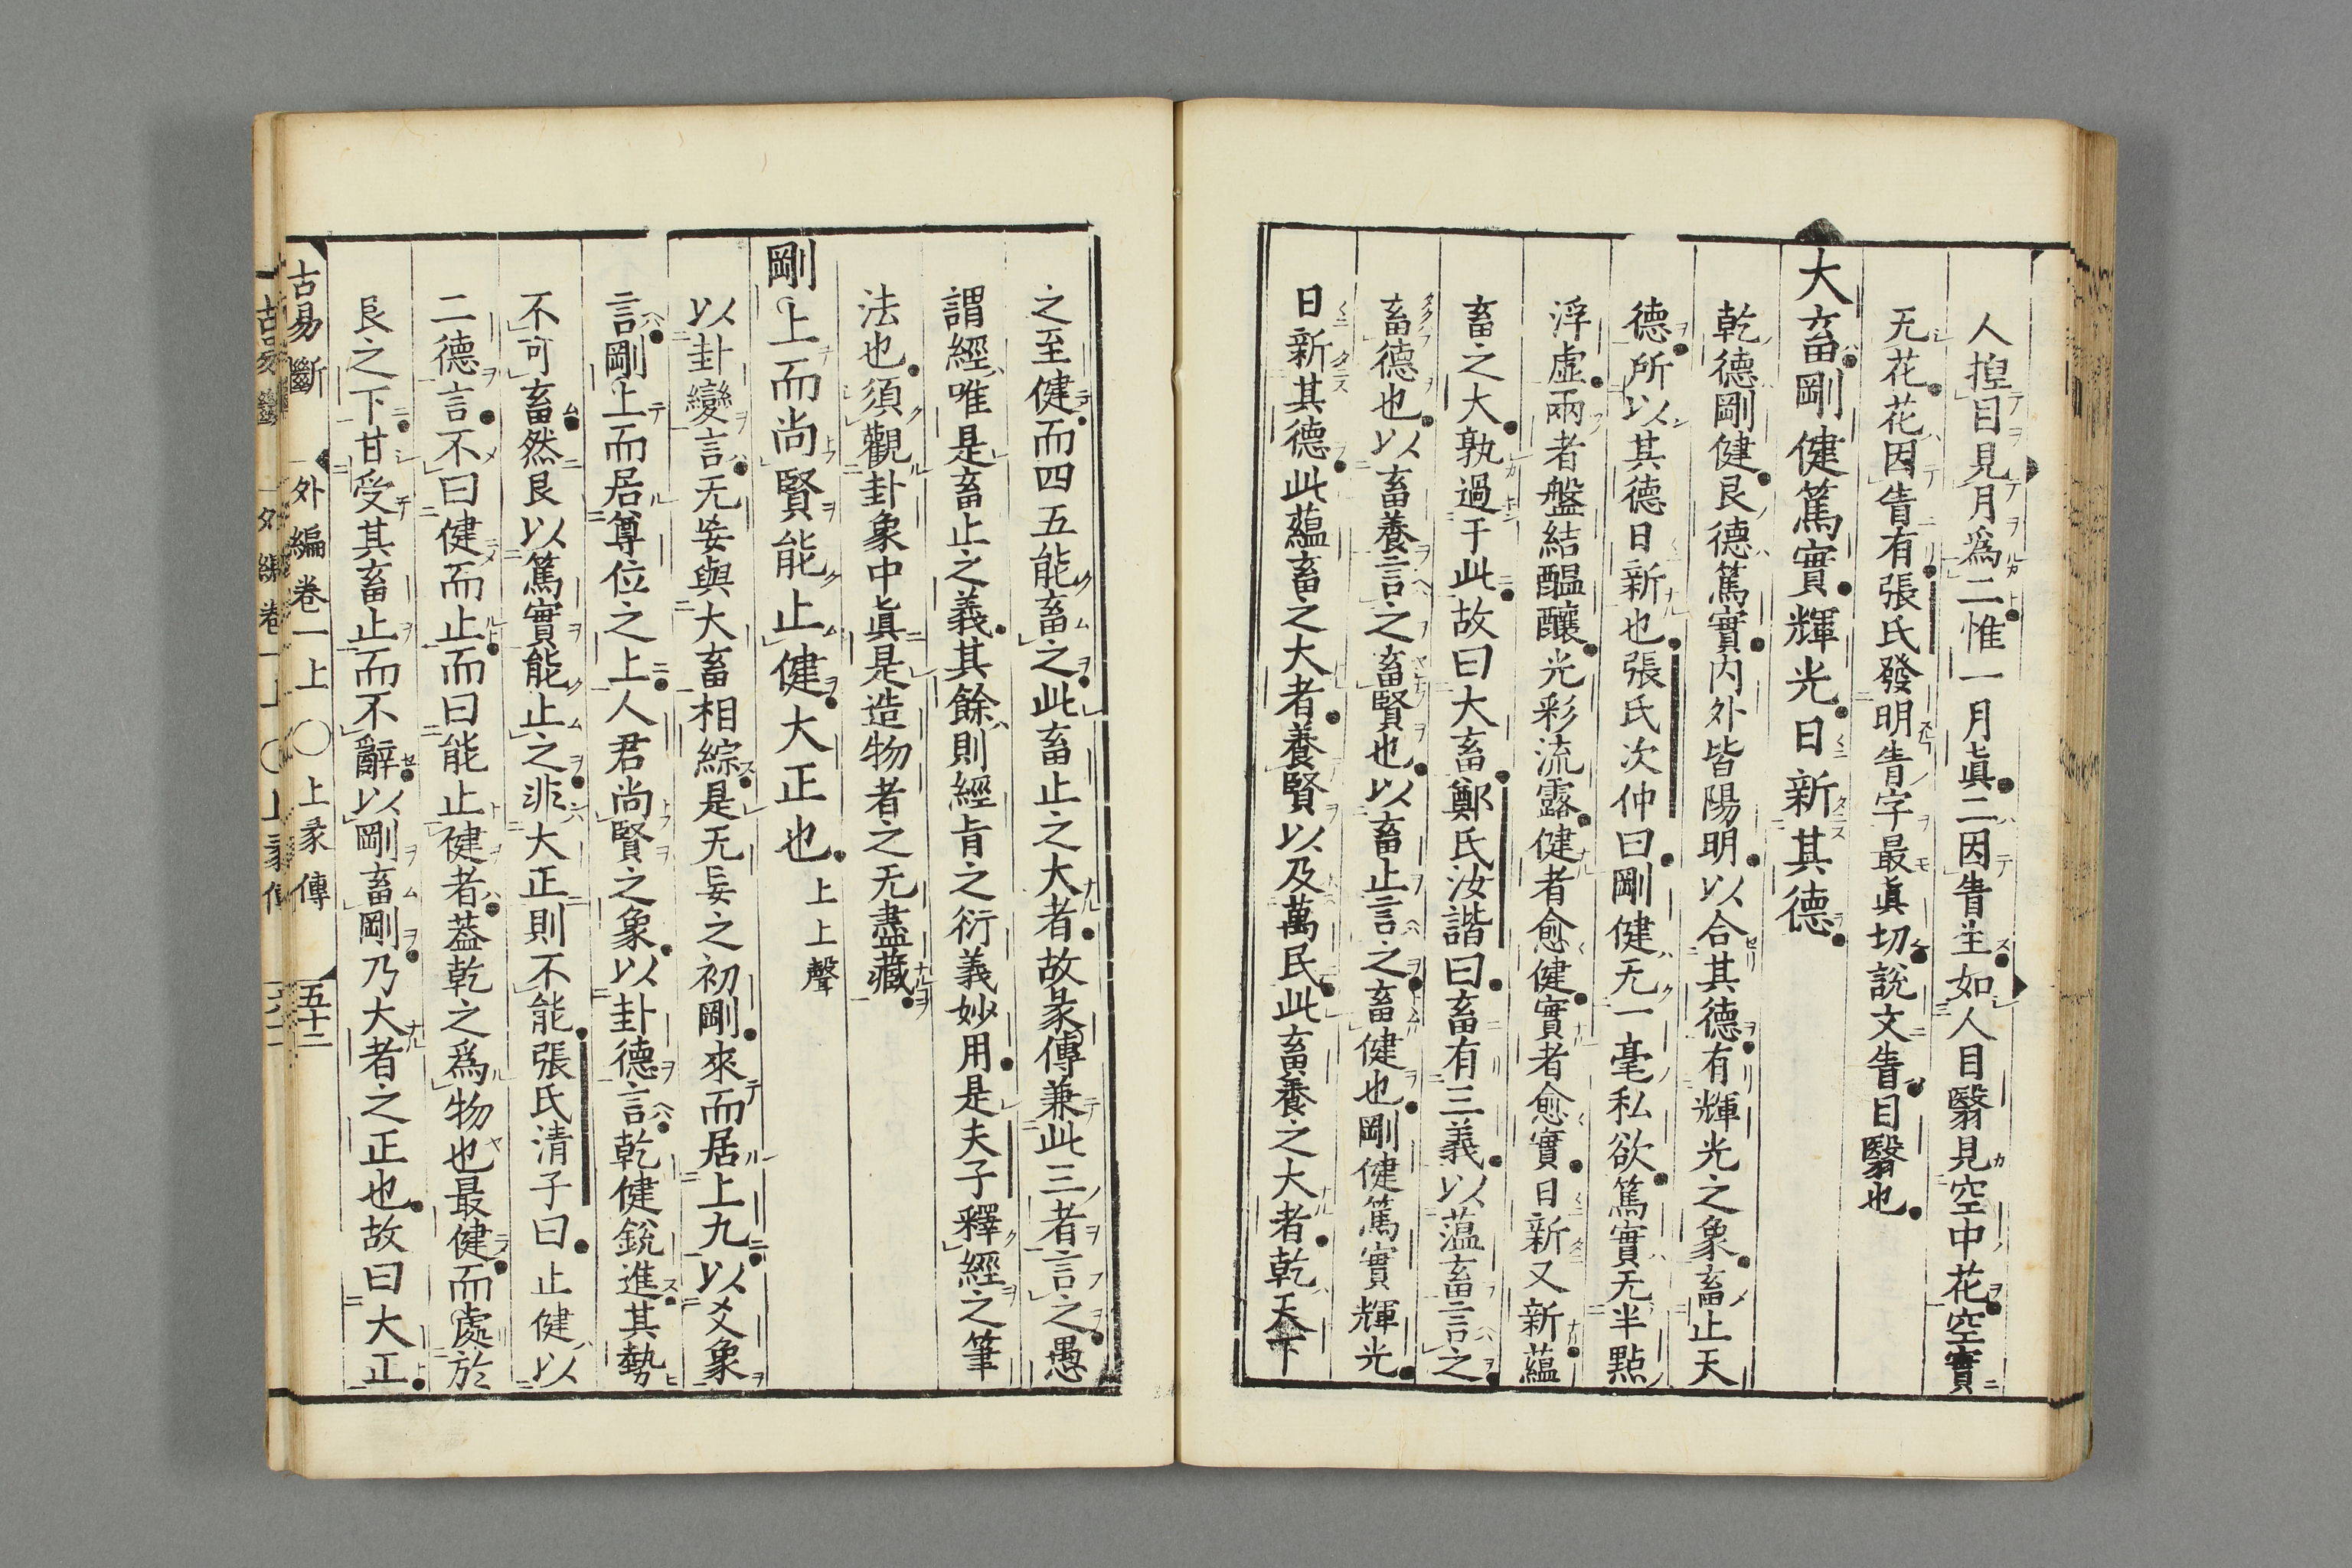 人揑目見月爲二惟一月眞二因眚生如人目翳見空中花空實
无花花因眚有張氏發明眚字最眞切說文眚目翳也
大畜剛健篤實輝光日新其德
乾德剛健艮德篤實内外皆陽明以合其德有輝光之象畜止天
德所以其德日新也張氏次仲曰剛健无一毫私欲篤實无半點
浮虛兩者盤結醖釀光彩流露健者愈健實者愈實日新又新蘊
畜之大孰過于此故曰大畜鄭氏汝諧曰畜有三義以薀畜言之
畜德也以畜養言之畜賢也以畜止言之畜健也剛健篤實輝光
日新其德此蘊畜之大者養賢以及萬民此畜養之大者乾天下
之至健而四五能畜之此畜止之大者故彖傳兼此三者言之愚
謂經唯是畜止之義其餘則經肯之衍義妙用是夫子釋經之筆
法也須觀卦象中眞是造物者之无盡藏
剛上而尚賢能止健大正也 上上聲
以卦變言无妄與大畜相綜是无妄之初剛來而居上九以爻象
言剛上而居尊位之上人君尚賢之象以卦德言乾健銳進其勢
不可畜然艮以篤實能止之非大正則不能張氏清子曰止健以
二德言不曰健而止而曰能止健者葢乾之爲物也最健而處於
艮之下甘受其畜止而不辭以剛畜剛乃大者之正也故曰大正
古易斷 外編卷一上 〇上彖傳 五十二